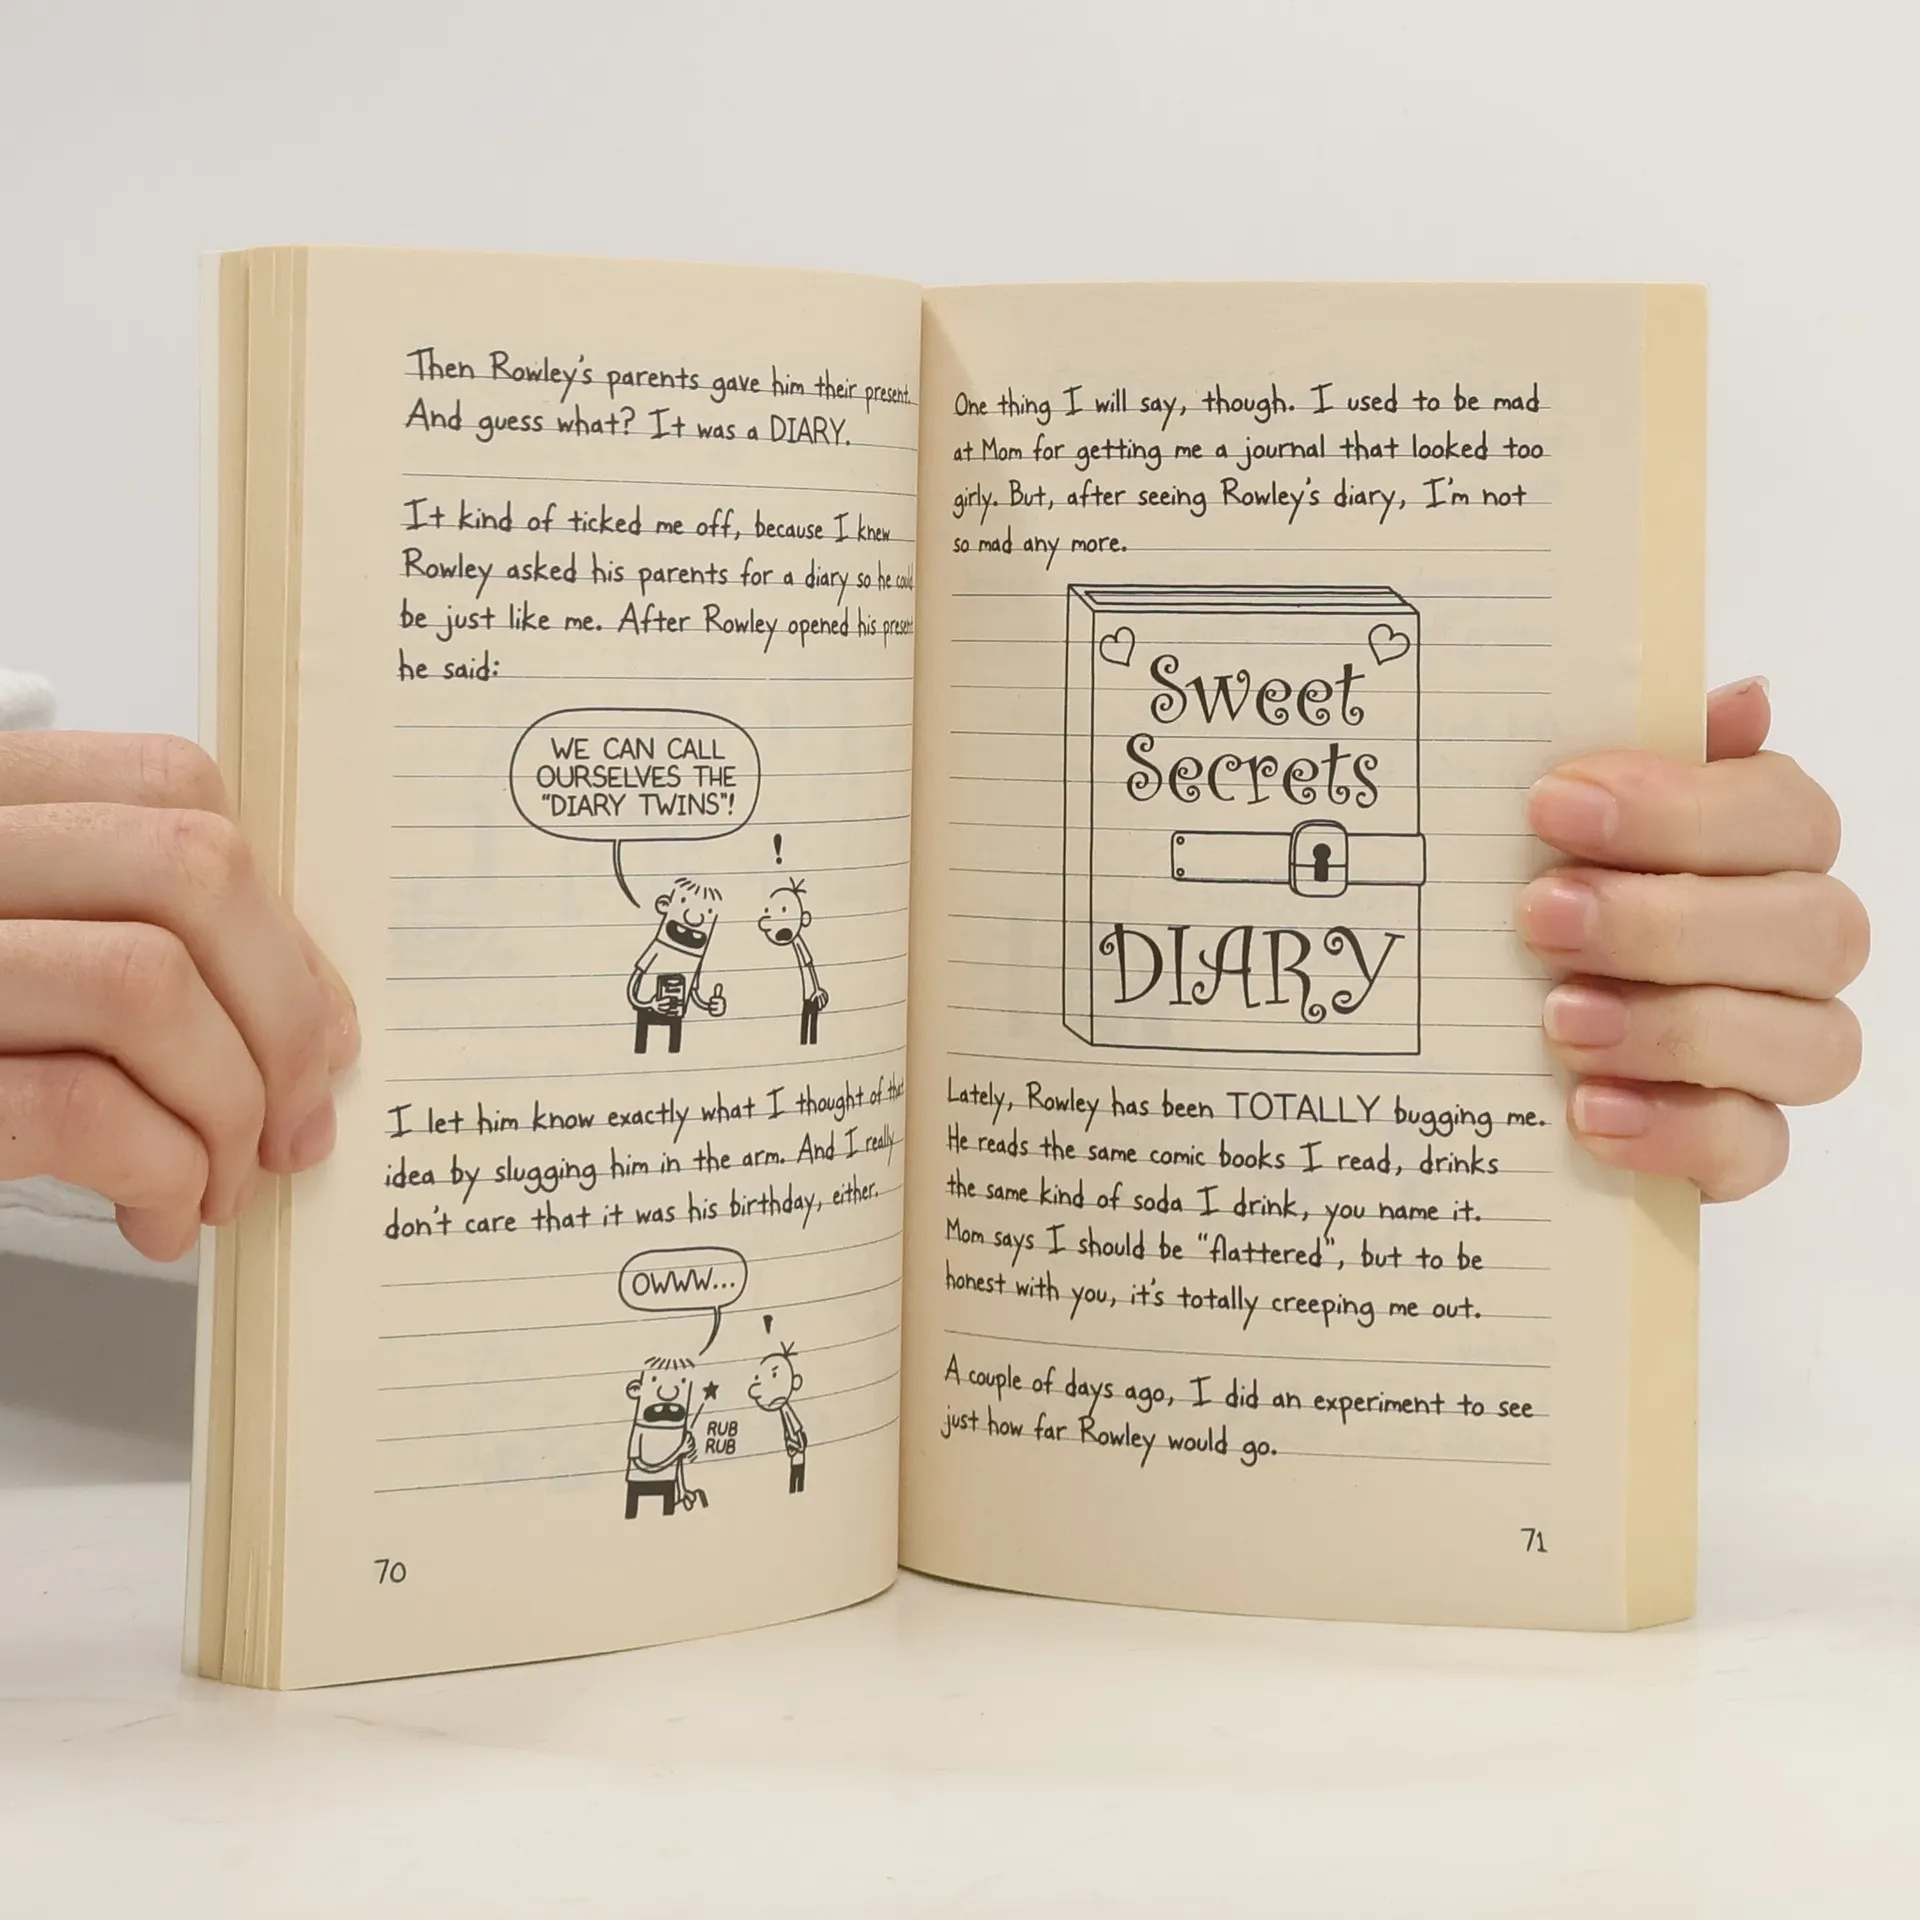 Then Rowley's parents gave him their present.
And guess what? It was a DIARY.
It kind of ticked me off, because I knew
Rowley asked his parents for a diary so he could
be just like me. After Rowley opened his present
he said:
WE CAN CALL
OURSELVES THE
"DIARY TWINS"!
!
I let him know exactly what I thought of that
idea by slugging him in the arm. And I really
don't care that it was his birthday, either.
OWWW...
RUB
RUB
70
One thing I will say, though. I used to be mad
at Mom for getting me a journal that looked too
girly. But, after seeing Rowley's diary, I'm not
so mad any more.
Sweet
Secrets
DIARY
Lately, Rowley has been TOTALLY bugging me.
He reads the same comic books I read, drinks
the same kind of soda I drink, you name it.
Mom says I should be "flattered", but to be
honest with you, it's totally creeping me out.
A couple of days ago, I did an experiment to see
just how far Rowley would go.
71